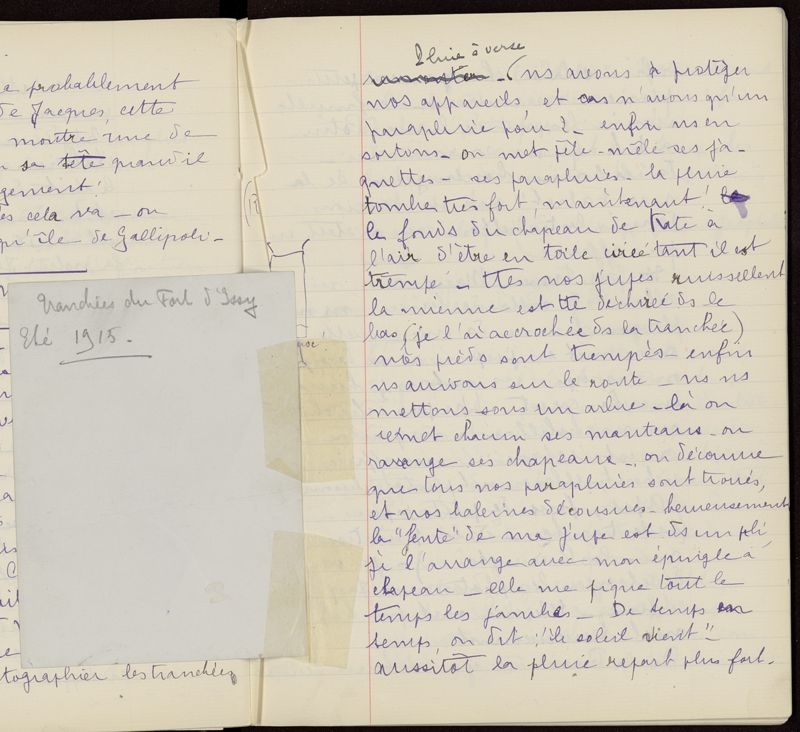 e probablement
de Jacques, cette
montre une de
sa tête quand il
gement.
es cela va _ on
qu'île de Gallipoli _
Tranchées du Fort d'Issy
Eté 1915.
tographier les tranchées
Pluie à verse
_ (ns avons à protéger
nos appareils et ns n'avons qu'un
parapluie pour 2 _ enfin ns en
sortons _ on met pêle-mêle ses ja-
quettes _ ses parapluies la pluie
tombe très fort, maintenant!
le fonds du chapeau de Kate à
l'air d'être en toile cirée tant il est
trempé _ Ttes nos jupes ruissellent
la mienne est tte déchirée ds le
bas (je l'ai accrochée ds la tranchée)
nos pieds sont trempés _ enfin
ns arrivons sur la route _ ns ns
mettons sous un arbre _ là on
remet chacun ses manteaux _ on
rarange ses chapeaux _ on découvre
que tous nos parapluies sont troués,
et nos baleines décousues _ heureusement
la "fente" de ma jupe est ds un pli,
je l'arrange avec mon épingle à
chapeau _ elle me pique tout le
temps les jambes _ De temps en
temps, on dit: "le soleil vient"
aussitôt la pluie repart plus fort _